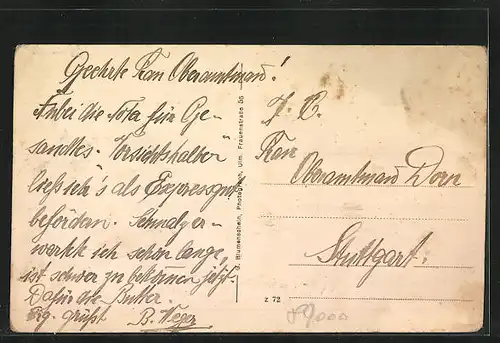 Geehrte Frau Oberamtmann!
Anbei die Nota für Ge-
sandtes. Vorsichtshalber
ließ ich's als Expressgut
befördern. Schmalz er-
warkte ich schon lange,
ist schwer zu bekommen jetzt.
Dafür die Butter.
Erg. grüßt B. Weger
G. Blumenschein, Photograph, Ulm, Frauenstraße 36
Frau
Oberamtmann Dorn
Stuttgart.
Z 72